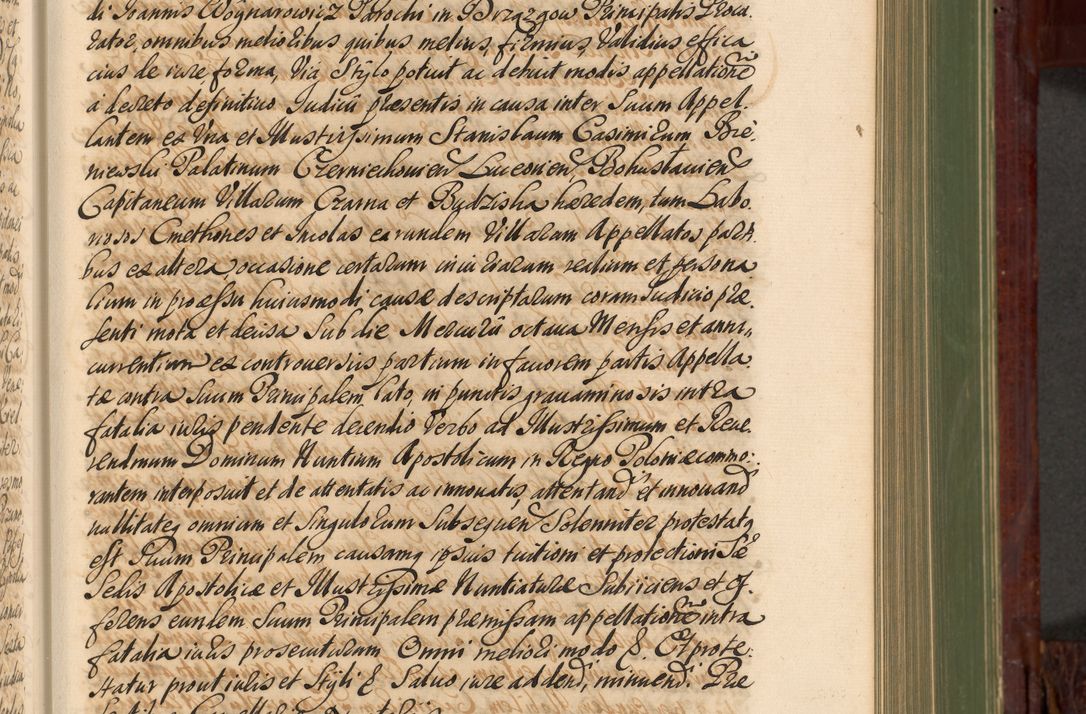 di Joannis Woynarowicz Parochi in Brzazgow Principalis Procu
rator, omnibus melioribus quibus melius, firmius, validius effica
cius de iure forma, via Stylo potuit ac debuit modis appellationem
a decreto definitivo Judicii praesentis in causa inter Suum Appel.
lantem ex una et Illustrissimum Stanislaum Casimirum Bie
niewski Palatinum Czerniechovien Luceorien, Bohuslavien
Capitaneum Villarum Czarna et Budziska haeredem, tum Labo
riosos Cmethones et Incolas earundem Villarum Appellatos, parti
bus ex altera occasione certarum iniuriarum realium et persona
lium in processu huiusmodi causae descriptarum coram Judicio prae
senti mota et decisa Sub die Mercurii octava Mensis et anni
currentium ex controversiis partium in favorem partis Appella
tae contra Suum Principalem lato, in punctis gravaminosis intra
fatalia iuris pendente decendio Verbo ad Illustrissimum et Reve
rendmum Dominum Nuntium Apostolicum in Regno Poloniae commo
rantem interposuit et de attentatis ac innovatis, attentand et innovand
nullitateq omnium et Singulorum Subsequen Solenniter protestatq
est Suum Principalem causamq ipsius tuitioni et protectioni Sae
Sedis Apostolicae et Illustrissimae Nuntiaturae Subiiciens et of
ferens eundem Suum Principalem praemissam appellationem intra
fatalia iuris prosecuturum Omni meliori modo &. Et prote
statur prout iuris et Styli & Salvo iure addend, minuend. Prae